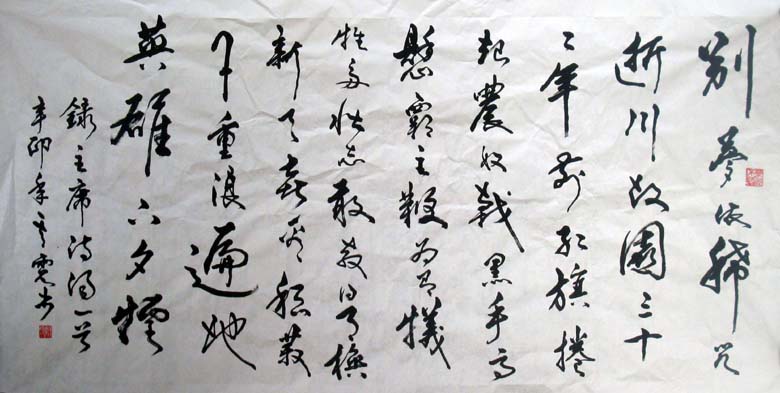 别夢依稀咒
逝川故園三十
二年前红旗捲
起農奴戟黑手高
懸霸主鞭为有犧
牲多壮志敢教日月换
新天喜看稻菽
千重浪遍地
英雄下夕煙
録主席诗词一首
辛卯年书